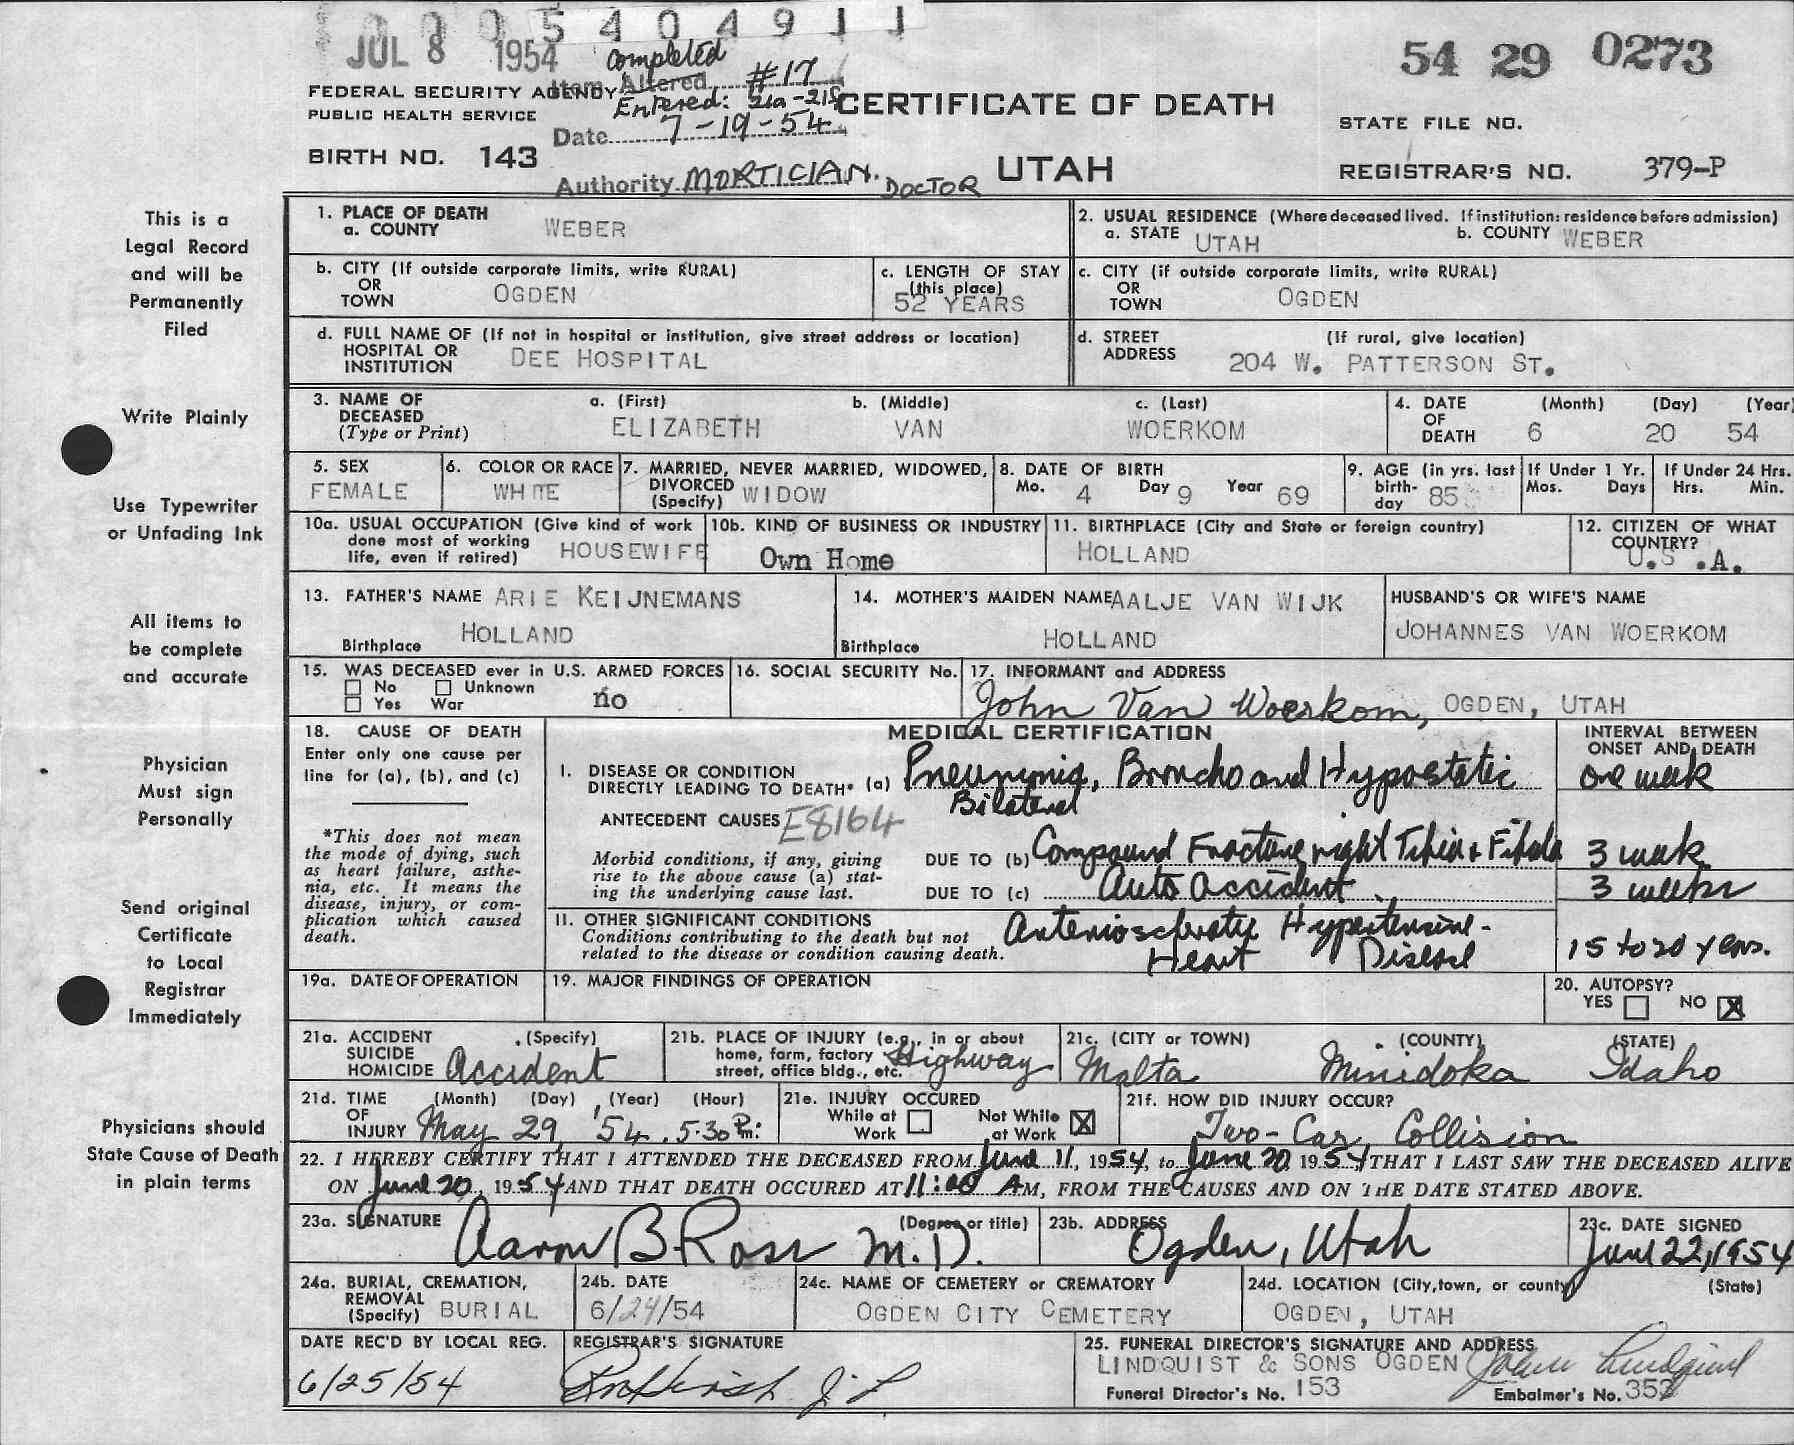 0 0 0 5 4 0 4 9 1 1
JUL 8 1954
completed
Item Altered #17
Entered: 21a-21f
Date 7-19-54
Authority MORTICIAN. DOCTOR
54 29 0273
FEDERAL SECURITY AGENCY
PUBLIC HEALTH SERVICE
BIRTH NO. 143
CERTIFICATE OF DEATH
UTAH
STATE FILE NO.
REGISTRAR'S NO. 379-P
This is a
Legal Record
and will be
Permanently
Filed
Write Plainly
Use Typewriter
or Unfading Ink
All items to
be complete
and accurate
Physician
Must sign
Personally
Send original
Certificate
to Local
Registrar
Immediately
Physicians should
State Cause of Death
in plain terms
1. PLACE OF DEATH
a. COUNTY WEBER
2. USUAL RESIDENCE (Where deceased lived. If institution: residence before admission)
a. STATE UTAH b. COUNTY WEBER
b. CITY (If outside corporate limits, write RURAL)
OR
TOWN OGDEN
c. LENGTH OF STAY
(this place)
52 YEARS
c. CITY (if outside corporate limits, write RURAL)
OR
TOWN OGDEN
d. FULL NAME OF (If not in hospital or institution, give street address or location)
HOSPITAL OR
INSTITUTION DEE HOSPITAL
d. STREET (If rural, give location)
ADDRESS 204 W. PATTERSON ST.
3. NAME OF DECEASED (Type or Print)
a. (First) b. (Middle) c. (Last)
ELIZABETH VAN WOERKOM
4. DATE OF DEATH (Month) (Day) (Year)
6 20 54
5. SEX
FEMALE
6. COLOR OR RACE
WHITE
7. MARRIED, NEVER MARRIED, WIDOWED,
DIVORCED
(Specify) WIDOW
8. DATE OF BIRTH
Mo. 4 Day 9 Year 69
9. AGE (in yrs. last
birth-
day 85
If Under 1 Yr.
Mos. Days
If Under 24 Hrs.
Hrs. Min.
10a. USUAL OCCUPATION (Give kind of work
done most of working
life, even if retired) HOUSEWIFE
10b. KIND OF BUSINESS OR INDUSTRY
Own Home
11. BIRTHPLACE (City and State or foreign country)
HOLLAND
12. CITIZEN OF WHAT
COUNTRY?
U.S.A.
13. FATHER'S NAME ARIE KEIJNEMANS
Birthplace HOLLAND
14. MOTHER'S MAIDEN NAME AALJE VAN WIJK
Birthplace HOLLAND
HUSBAND'S OR WIFE'S NAME
JOHANNES VAN WOERKOM
15. WAS DECEASED ever in U.S. ARMED FORCES
No Unknown
Yes War no
16. SOCIAL SECURITY No.
17. INFORMANT and ADDRESS
John Van Woerkom, OGDEN, UTAH
18. CAUSE OF DEATH
Enter only one cause per
line for (a), (b), and (c)
*This does not mean
the mode of dying, such
as heart failure, asthe-
nia, etc. It means the
disease, injury, or com-
plication which caused
death.
MEDICAL CERTIFICATION
INTERVAL BETWEEN
ONSET AND DEATH
I. DISEASE OR CONDITION
DIRECTLY LEADING TO DEATH* (a) Pneumonia, Broncho and Hypostatic one week
Bilateral
ANTECEDENT CAUSES E8164
Morbid conditions, if any, giving
rise to the above cause (a) stat-
ing the underlying cause last.
DUE TO (b) Compound Fracture right Tibia + Fibula 3 week
DUE TO (c) Auto Accident 3 weeks
II. OTHER SIGNIFICANT CONDITIONS
Conditions contributing to the death but not
related to the disease or condition causing death.
Arteriosclerotic Hypertensive-
Heart Disease 15 to 20 years.
19a. DATE OF OPERATION
19. MAJOR FINDINGS OF OPERATION
20. AUTOPSY?
YES NO X
21a. ACCIDENT (Specify)
SUICIDE
HOMICIDE Accident
21b. PLACE OF INJURY (e.g., in or about
home, farm, factory
street, office bldg., etc. Highway
21c. (CITY or TOWN) (COUNTY) (STATE)
Malta Minidoka Idaho
21d. TIME (Month) (Day) (Year) (Hour)
OF
INJURY May 29 '54 5:30 Pm:
21e. INJURY OCCURED
While at Work Not While at Work X
21f. HOW DID INJURY OCCUR?
Two-Car Collision
22. I HEREBY CERTIFY THAT I ATTENDED THE DECEASED FROM June 11, 1954, to June 20 1954 THAT I LAST SAW THE DECEASED ALIVE
ON June 20, 1954 AND THAT DEATH OCCURED AT 11:00 AM, FROM THE CAUSES AND ON THE DATE STATED ABOVE.
23a. SIGNATURE (Degree or title)
Aaron B. Ross M.D.
23b. ADDRESS
Ogden, Utah
23c. DATE SIGNED
June 22, 1954
24a. BURIAL, CREMATION,
REMOVAL
(Specify) BURIAL
24b. DATE
6/24/54
24c. NAME OF CEMETERY or CREMATORY
OGDEN CITY CEMETERY
24d. LOCATION (City, town, or county) (State)
OGDEN, UTAH
DATE REC'D BY LOCAL REG.
6/25/54
REGISTRAR'S SIGNATURE
25. FUNERAL DIRECTOR'S SIGNATURE AND ADDRESS
LINDQUIST & SONS OGDEN John Lindquist
Funeral Director's No. 153 Embalmer's No. 353